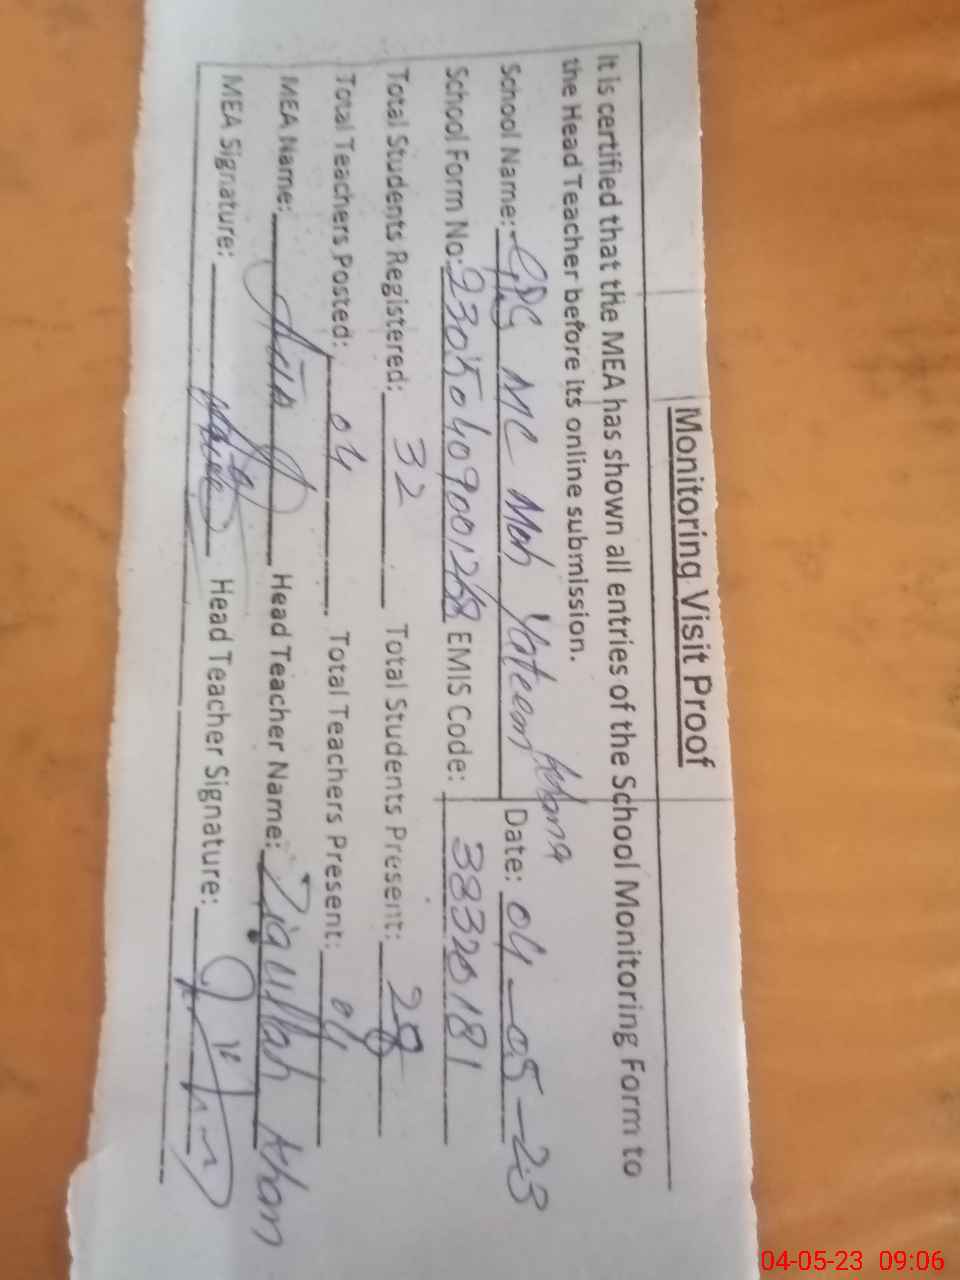 Monitoring Visit Proof
It is certified that the MEA has shown all entries of the School Monitoring Form to
the Head Teacher before its online submission.
School Name: GPS MC Moh Yateem Khana Date: 04-05-23
School Form No: EMIS Code: 38320181
Total Students Registered: 32 Total Students Present: 28
Total Teachers Posted: 04 Total Teachers Present: 04
MEA Name: Head Teacher Name: Ziaullah Khan
MEA Signature: Head Teacher Signature:
04-05-23 09:06